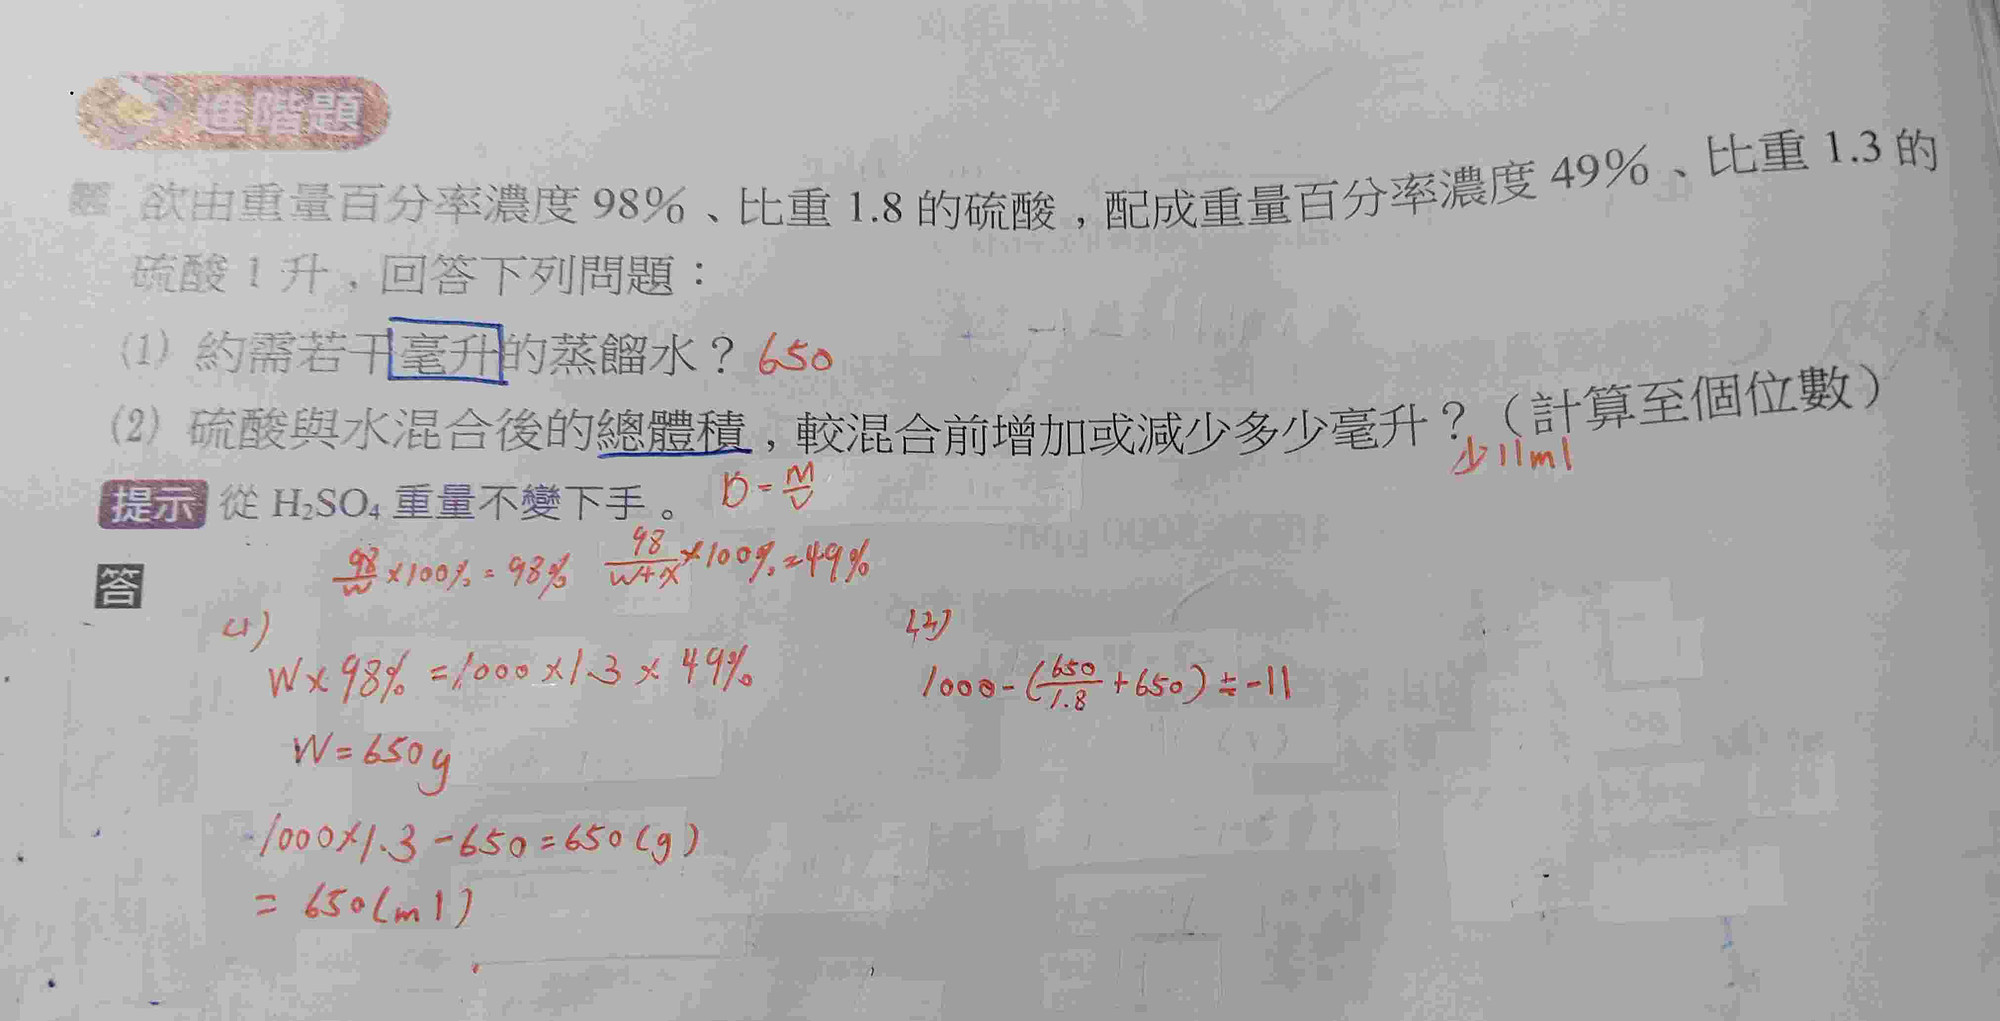 進階題
欲由重量百分率濃度 98%、比重 1.8 的硫酸，配成重量百分率濃度 49%、比重 1.3 的
硫酸 1 升，回答下列問題：
(1) 約需若干毫升的蒸餾水？ 650
(2) 硫酸與水混合後的總體積，較混合前增加或減少多少毫升？（計算至個位數）
少11ml
提示 從 H₂SO₄ 重量不變下手。 D=M/V
答
98/W×100%=98% 98/W+X×100%=49%
(1)
(2)
W×98%=1000×1.3×49%
1000-(650/1.8+650)≒-11
W=650g
1000×1.3-650=650(g)
=650(ml)